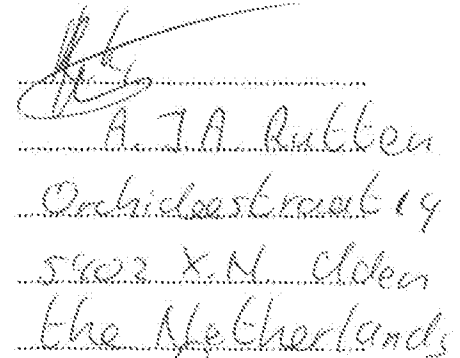 A.J.A. Rutten
Orchideestraat 14
5402 X.N. Uden
the Netherlands